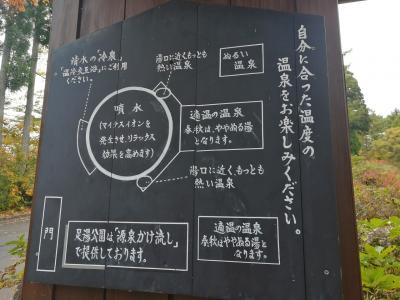 自分に合った温度の
温泉をお楽しみください。
清水の「冷泉」
「温冷交互浴」にご利用
ください。
湯口に近くもっとも
熱い温泉
ぬるい
温泉
噴水
(マイナスイオンを
発生させ、リラックス
効果を高めます)
適温の温泉
春秋は、ややぬる湯と
なります。
湯口に近く、もっとも
熱い温泉
適温の温泉
春秋はややぬる湯と
なります。
門
足湯公園は「源泉かけ流し」
で提供しております。